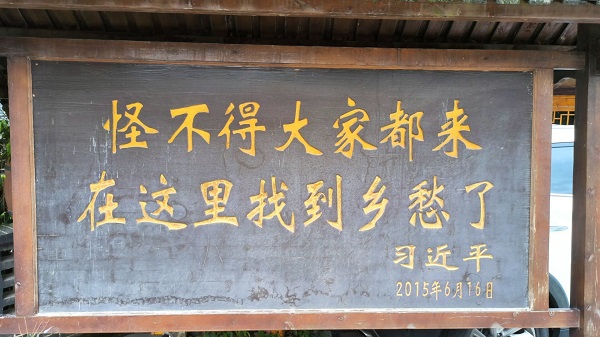 怪不得大家都来
在这里找到乡愁了
习近平
2015年6月16日